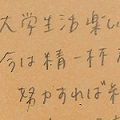 大学生活楽し
今は精一杯
努力すれば